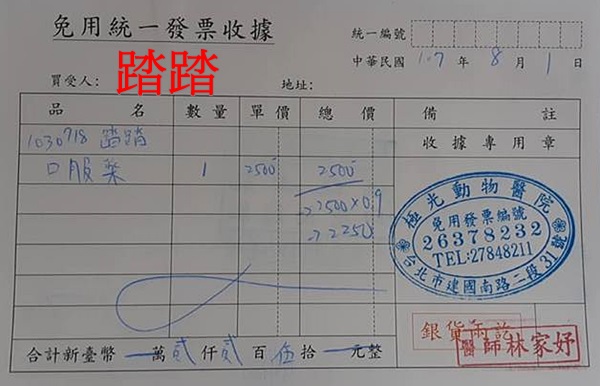 免用統一發票收據
統一編號
中華民國 107 年 8 月 1 日
買受人： 踏踏 地址：
品 名 數量 單價 總 價 備 註
1030718 踏踏 收據專用章
口服藥 1 2500 2500
→2500×0.9
→2250
極光動物醫院
免用發票編號
26378232
TEL:27848211
台北市建國南路二段31號
銀貨兩訖
醫師林家妤
合計新臺幣 一 萬 貳 仟 貳 百 伍 拾 一 元整